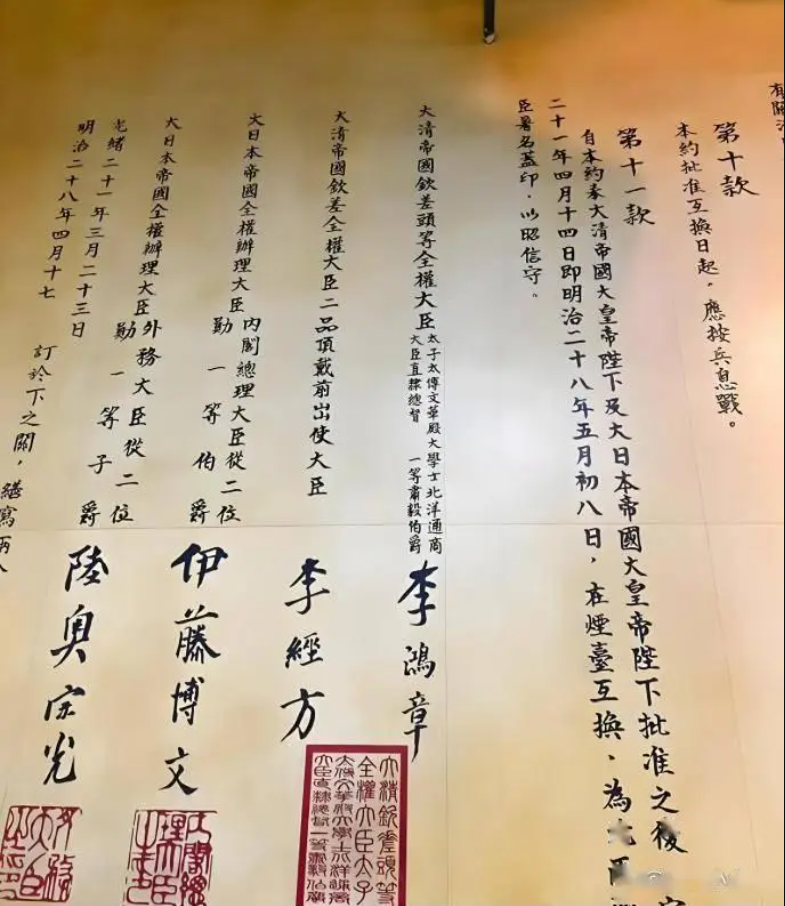 有關
第十款
本約批准互換日起，應按兵息戰。
第十一款
自本約奉大清帝國大皇帝陛下及大日本帝國大皇帝陛下批准之後
二十一年四月十四日即明治二十八年五月初八日，在煙臺互換、為
臣署名蓋印，以昭信守。
大清帝國欽差頭等全權大臣
太子太傅文華殿大學士北洋通商
大臣直隸總督　一等肅毅伯爵
李鴻章
大清帝國欽差全權大臣二品頂戴前出使大臣
李經方
大日本帝國全權辦理大臣
內閣總理大臣從二位
勳一等伯爵
伊藤博文
大日本帝國全權辦理大臣
外務大臣從二位
勳一等子爵
陸奧宗光
光緒二十一年三月二十三日
明治二十八年四月十七
訂於下之關，繕寫兩
大清欽差頭等
全權大臣太子
太傅文華殿大學士北洋通商
大臣直隸總督一等肅毅伯爵
內閣總
理大臣
外務
大臣